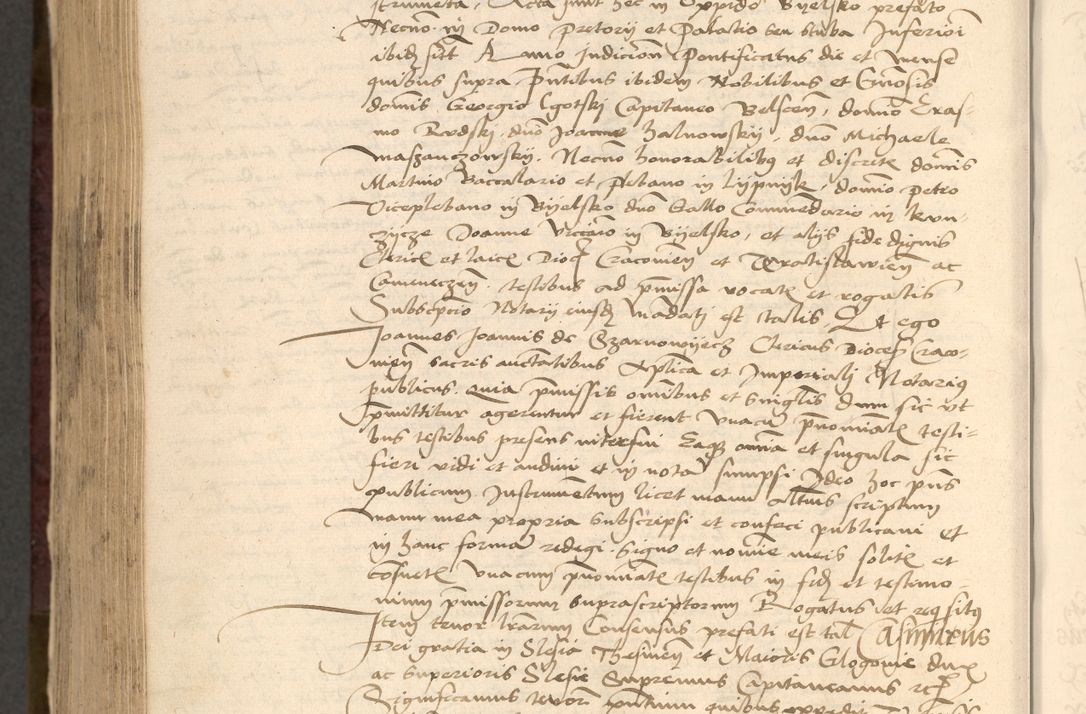 strumenta, Acta sunt hec in Oppido Byelsko prefato
Necno in Domo pretorij et Palatio seu stuba Inferiori
ibid sitt Anno Indicion Pontificatus die et mense
quibus supra Pntibus ibidem Nobilibus et Gnosis
domis Georgio Cgotskj Capitaneo Belscen, domno Eras-
mo Rudskj, duo Joanne Zalnowskij, duo Michaele
Maszanczowskij. Necno honorabilibq et discretis domis
Martino Baccalario et Plebano in Lypnijk, domno petro
Viceplebano in Byelsko duo Gallo Commedario in kun-
zijcze Joanne Viccaro in Byelsko, et alijs fide dignis
Clericis et laicis Dioc Cracovien et Wratislawien ac
Cameneczen. testibus ad pmissa vocatis et rogatis
Subscpcio Notarij eiusd Madati est talis Et ego
Joannes Joannis de Czarnowijecz Clericus Dioces Craco-
vien sacris auctatibus Aplica et Imperialj Notariq
publicus. quia pmissis omibus et singlis dum sic ut
pmittitur agerentur et fierent unacu pnominatis testi-
bus testibus presens interfui Eaqz omia et singula sic
fieri vidi et audivi et in nota sumpsi Ideo hoc pns
publicum Instrumentum licet manu altius scriptum
manu mea propria subscripsi et confeci publicavi et
in hanc forma redegi. signo et nomie meis solitis et
cosuetis unacum pnominatis testibus in fid et testimo-
nium pmissorum suprascriptorum Rogatus et reqsitq
Item tenor lrarum Consensus prefati est tal Casimirus
Dei gratia in Slesia Thesinen et Maioris Glogovie dux
ac superioris Slesie Supremus Capitaneus
Significamus tenore pntium quibus expedit